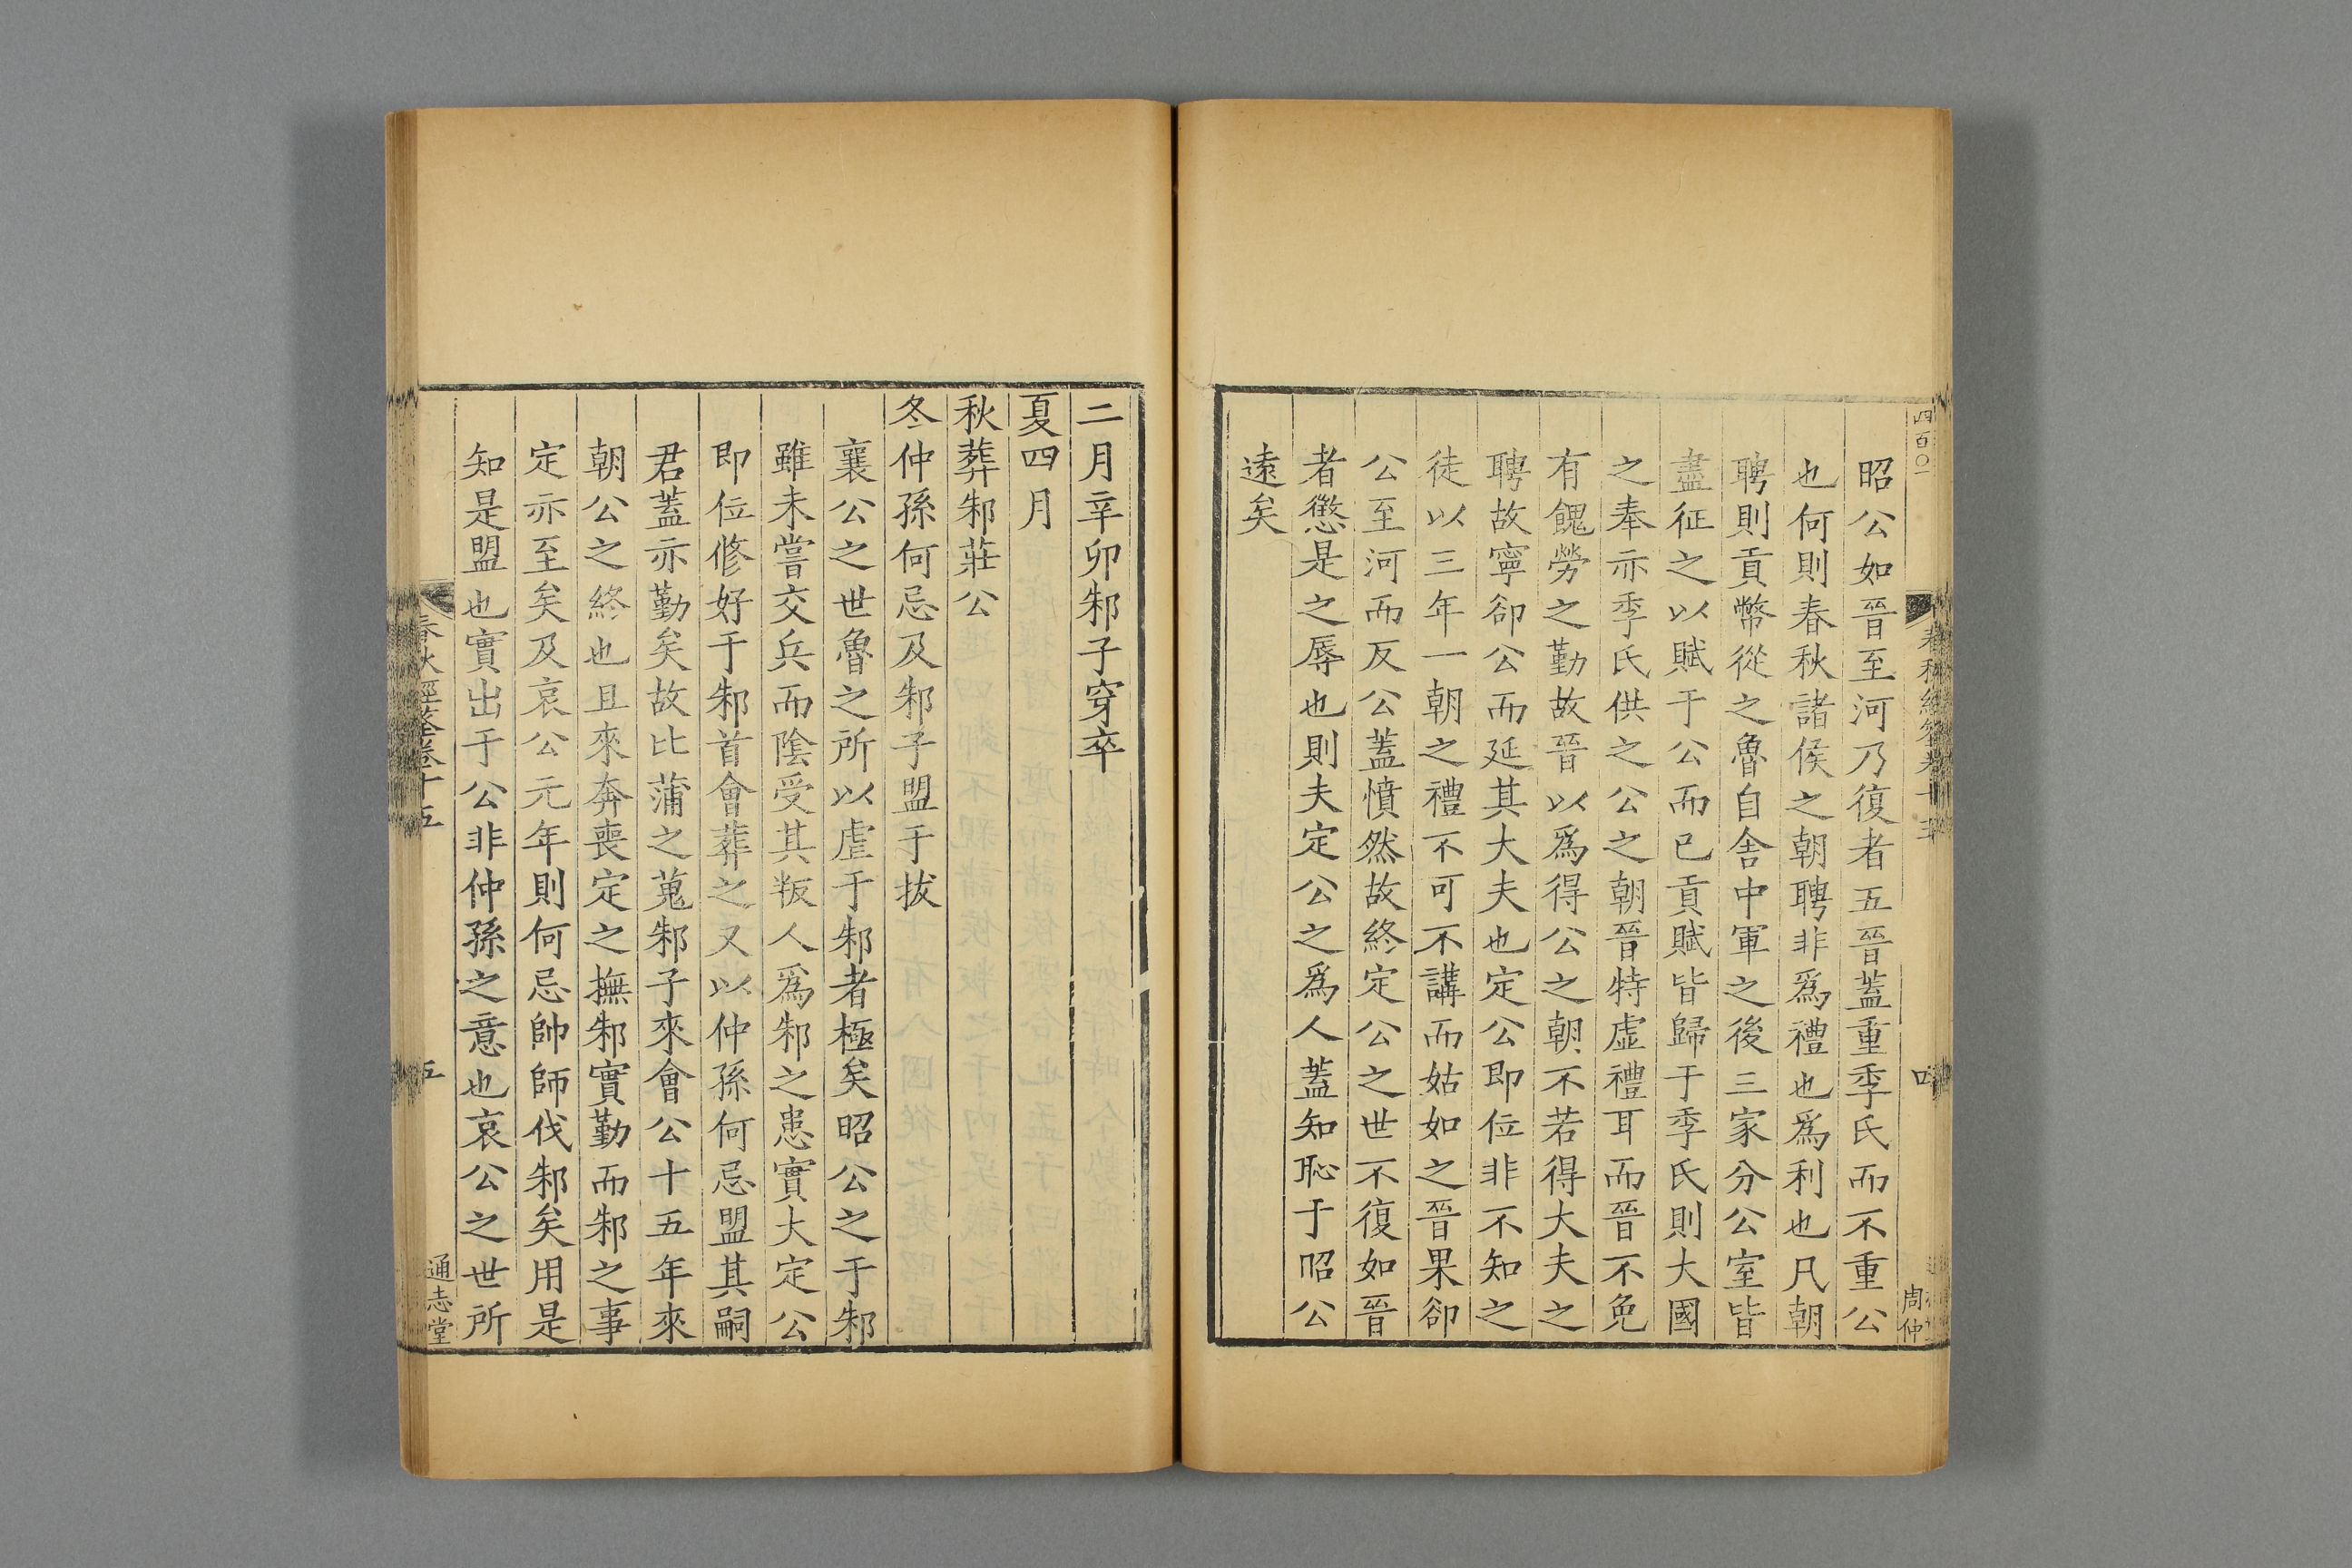 四百〇一
昭公如晉至河乃復者五晉蓋重季氏而不重公
也何則春秋諸侯之朝聘非爲禮也爲利也凡朝
聘則貢幣從之魯自舍中軍之後三家分公室皆
盡征之以賦于公而已貢賦皆歸于季氏則大國
之奉亦季氏供之公之朝晉特虛禮耳而晉不免
有餽勞之勤故晉以爲得公之朝不若得大夫之
聘故寧卻公而延其大夫也定公即位非不知之
徒以三年一朝之禮不可不講而姑如之晉果卻
公至河而反公蓋憤然故終定公之世不復如晉
者懲是之辱也則夫定公之爲人蓋知恥于昭公
遠矣
周仲
二月辛卯邾子穿卒
夏四月
秋葬邾莊公
冬仲孫何忌及邾子盟于拔
襄公之世魯之所以虐于邾者極矣昭公之于邾
雖未嘗交兵而陰受其叛人爲邾之患實大定公
即位修好于邾首會葬之又以仲孫何忌盟其嗣
君蓋亦勤矣故比蒲之蒐邾子來會公十五年來
朝公之終也且來奔喪定之撫邾實勤而邾之事
定亦至矣及哀公元年則何忌帥師伐邾矣用是
知是盟也實出于公非仲孫之意也哀公之世所
春秋經筌卷十五
五
通志堂